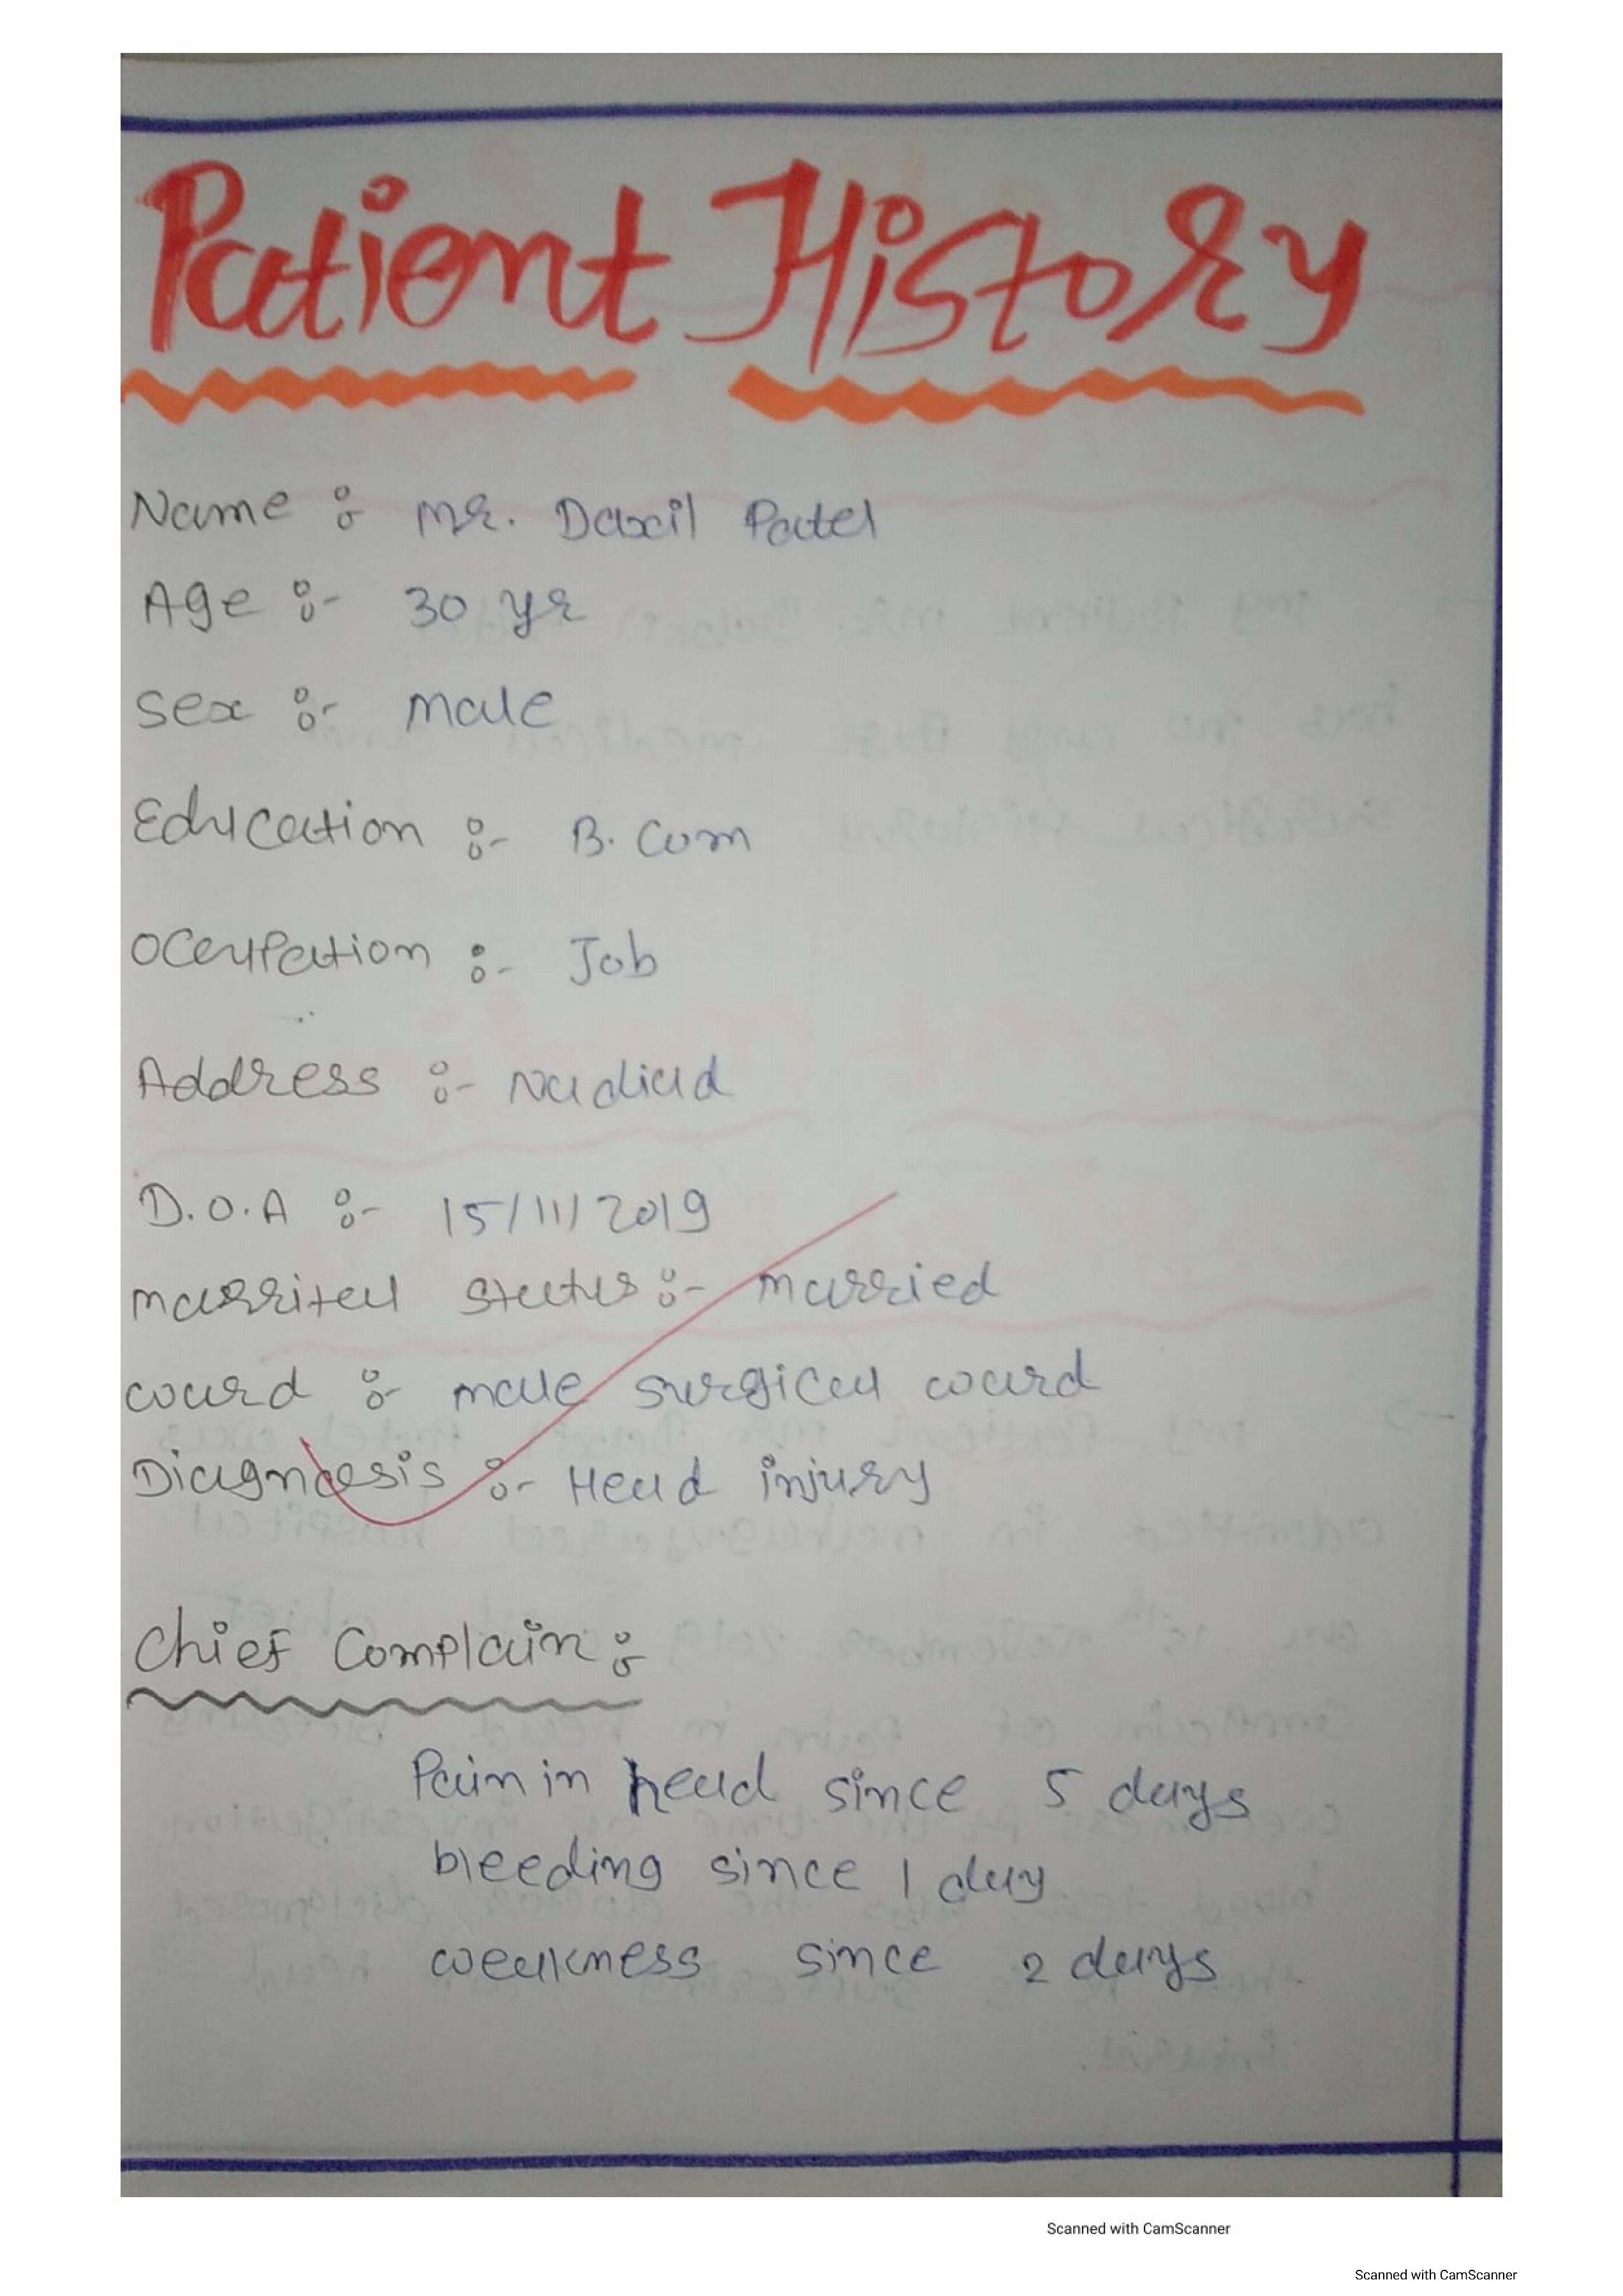 Patient History
Name :- Mr. Daxil Patel
Age :- 30 yr
Sex :- male
Education :- B. Com
Occupation :- Job
Address :- Nadiad
D.O.A :- 15/11/2019
marrital status :- married
ward :- male surgical ward
Diagnosis :- Head injury
Chief Complain :-
Pain in head since 5 days
bleeding since 1 day
weakness since 2 days
Scanned with CamScanner
Scanned with CamScanner